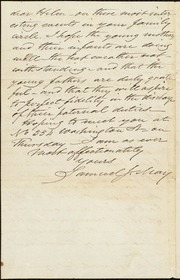 dear Helen – on these most inter-
esting events in your family
circle. I hope the young mothers
and their infants are doing
well – the hot weather not-
withstanding – and that the
young fathers are duly grate-
ful – and that they will aspire
to perfect fidelity in the discharge
of their paternal duties –
Hoping to meet you at
No 221 Washington St. on
Thursday – I am as ever
Most affectionately
Yours
Samuel J. May